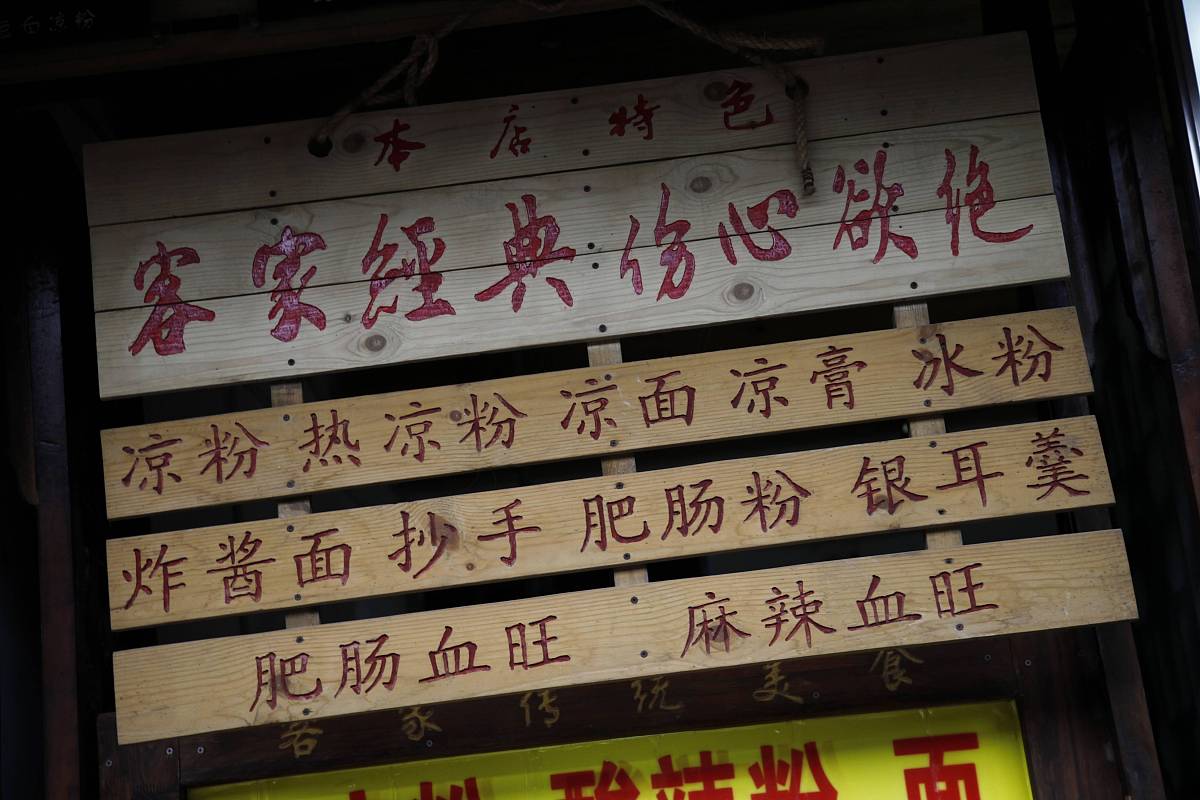 白凉粉
本店特色
客家經典 伤心欲绝
凉粉 热凉粉 凉面 凉膏 冰粉
炸酱面 抄手 肥肠粉 银耳羹
肥肠血旺 麻辣血旺
客家传统美食
粉 酸辣粉 面